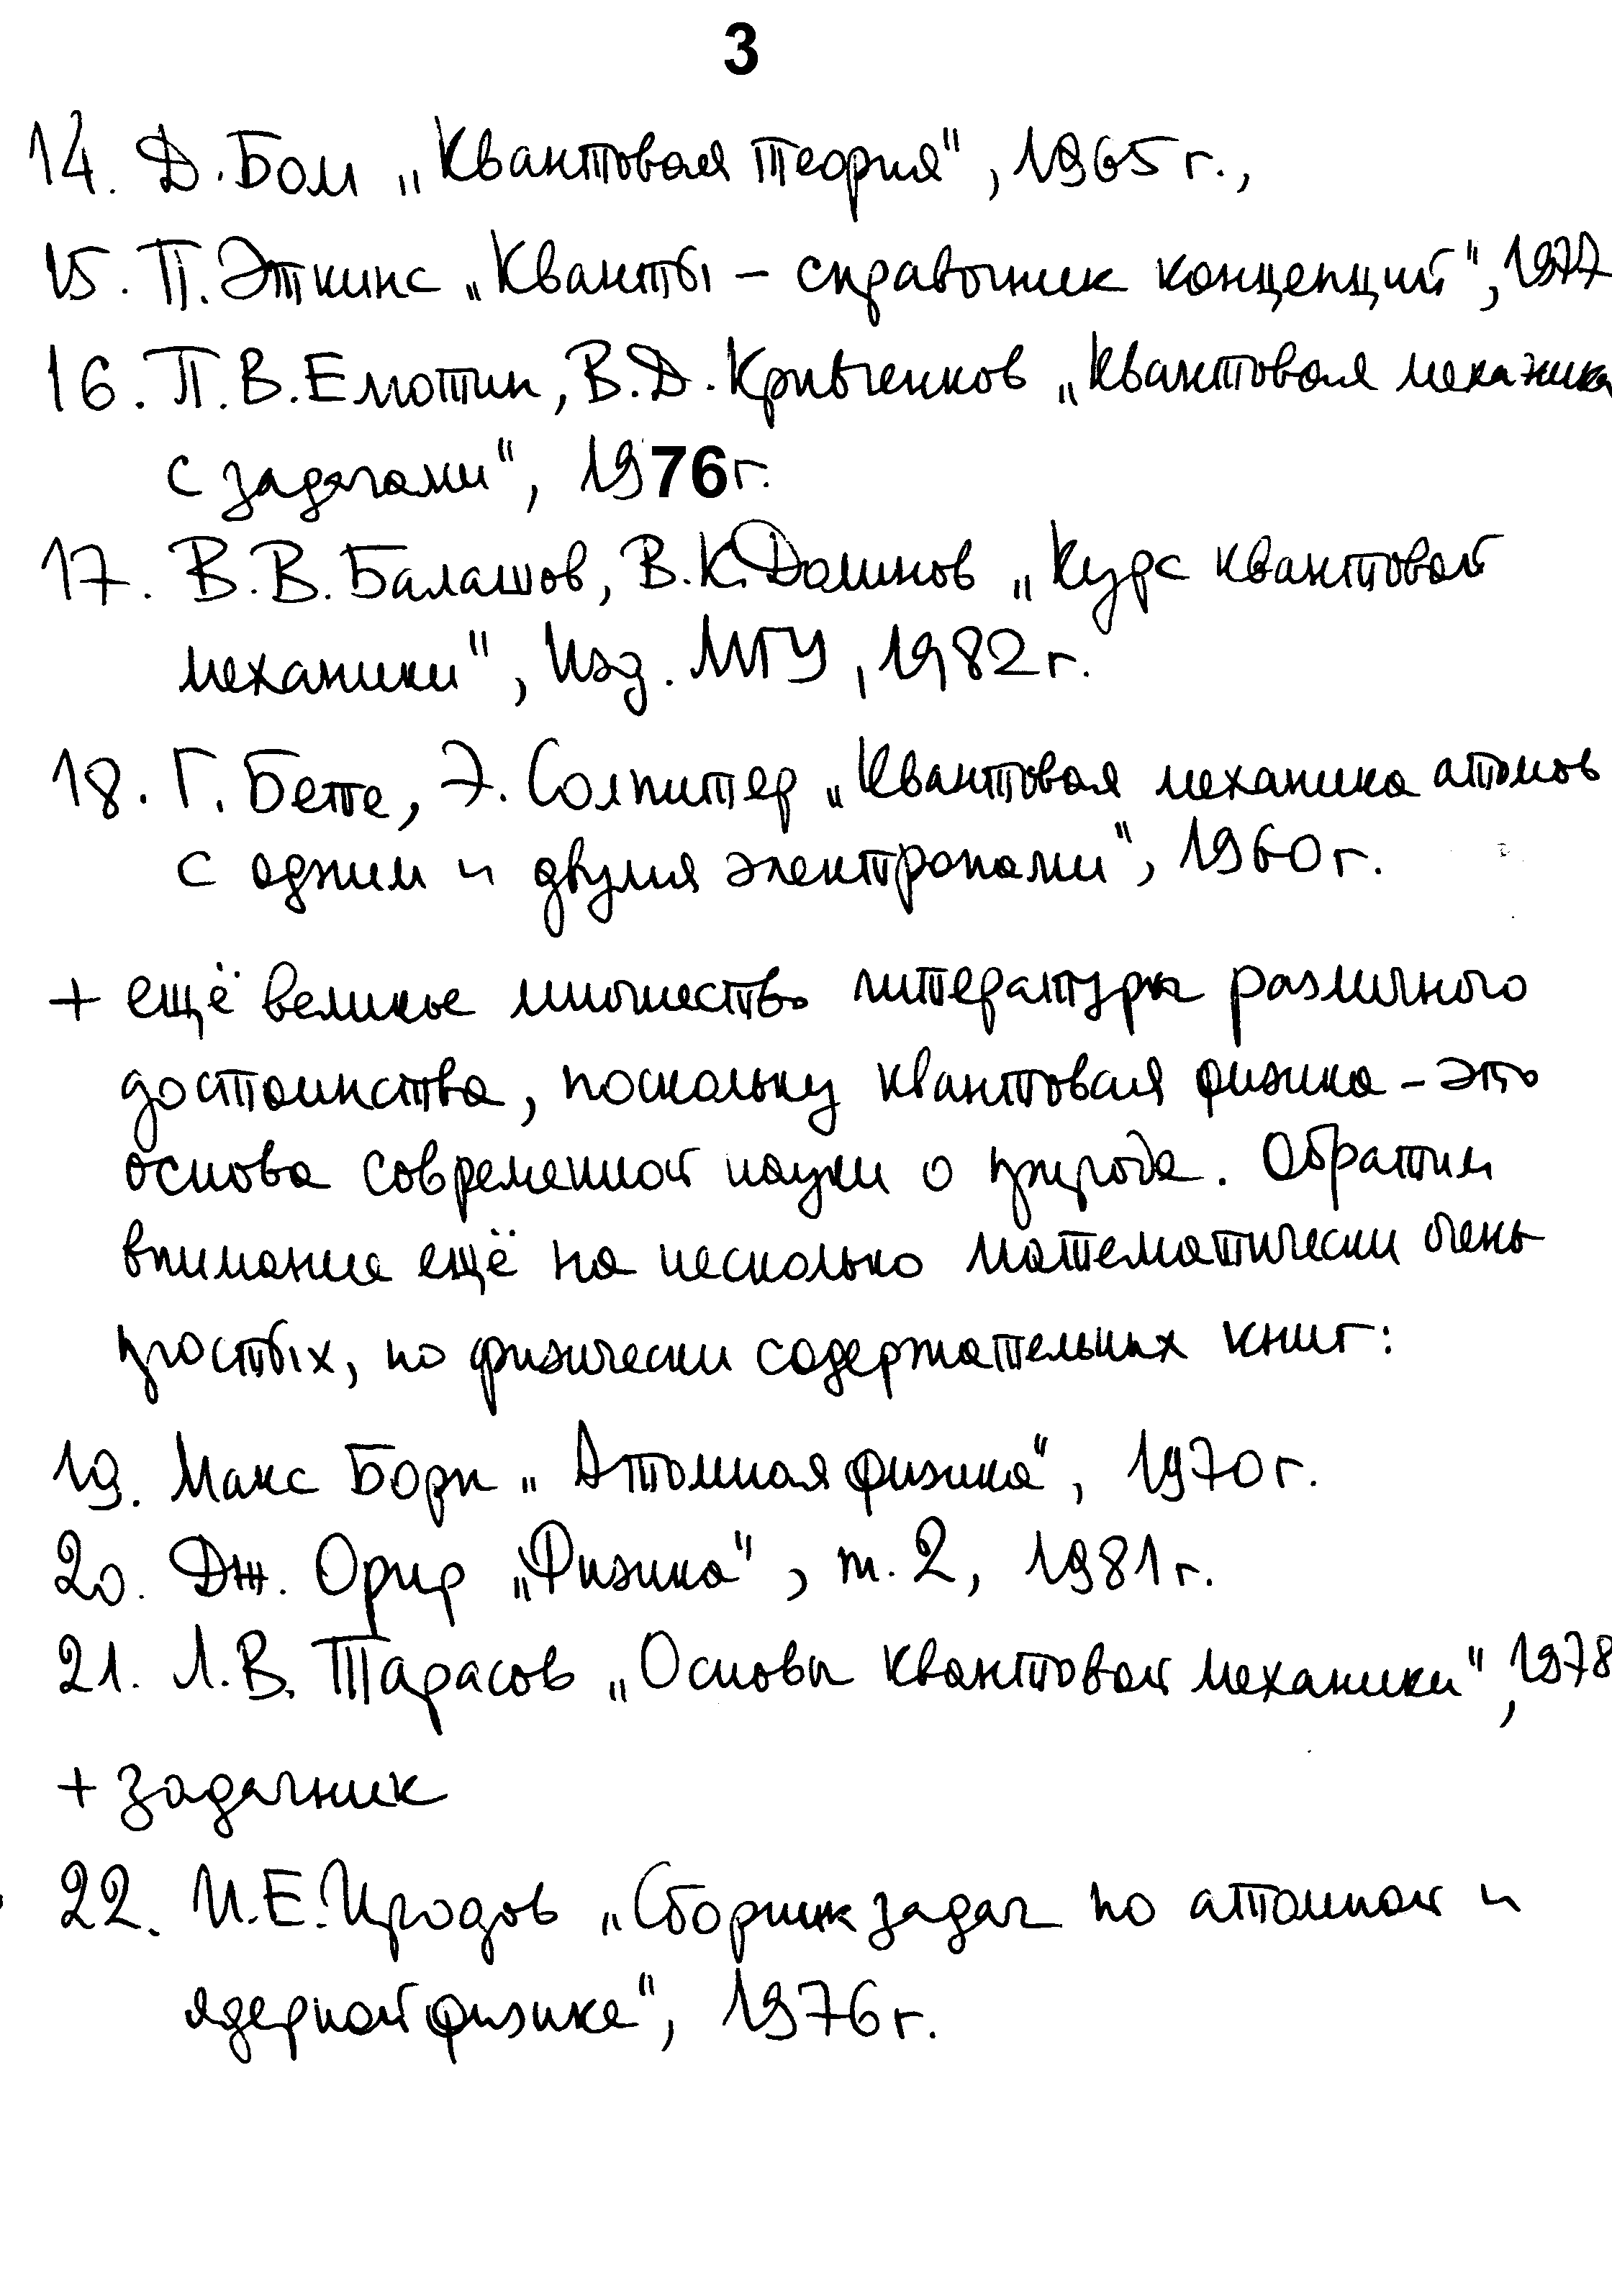 3
14. Д. Бом „Квантовая теория", 1965 г.,
15. П. Эткинс „Кванты – справочник концепций", 1977
16. П. В. Елютин, В. Д. Кривченков „Квантовая механика
с задачами", 1976 г.
17. В. В. Балашов, В. К. Долинов „Курс квантовой
механики", Изд. МГУ, 1982 г.
18. Г. Бете, Э. Солпитер „Квантовая механика атомов
с одним и двумя электронами", 1960 г.
+ ещё великое множество литературы различного
достоинства, поскольку квантовая физика – это
основа современной науки о природе. Обратим
внимание ещё на несколько математически очень
простых, но физически содержательных книг:
19. Макс Борн „Атомная физика", 1970 г.
20. Дж. Орир „Физика", т. 2, 1981 г.
21. Л. В. Тарасов „Основы квантовой механики", 1978
+ задачник
22. И. Е. Иродов „Сборник задач по атомной и
ядерной физике", 1976 г.